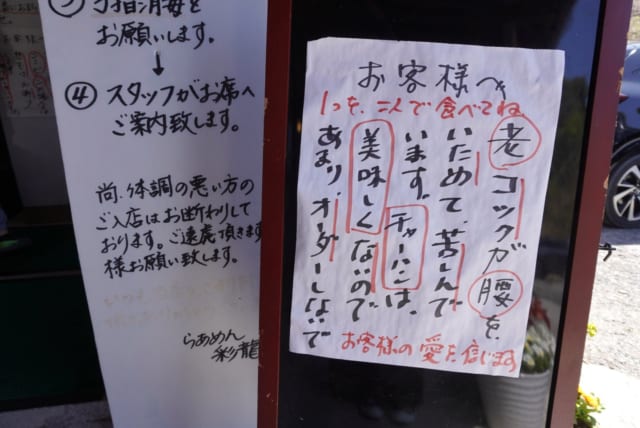 手指消毒を
お願いします。
↓
④ スタッフがお席へ
ご案内致します。
尚、体調の悪い方の
ご入店はお断わりして
おります。ご遠慮頂きます
様お願い致します。
らあめん
彩龍
お客様へ
1つを、二人で食べてね
老コックが腰を
いためて、苦しんで
います。チャーハンは、
美味しくないので
あまり、オーダーしないで
お客様の愛を信じます